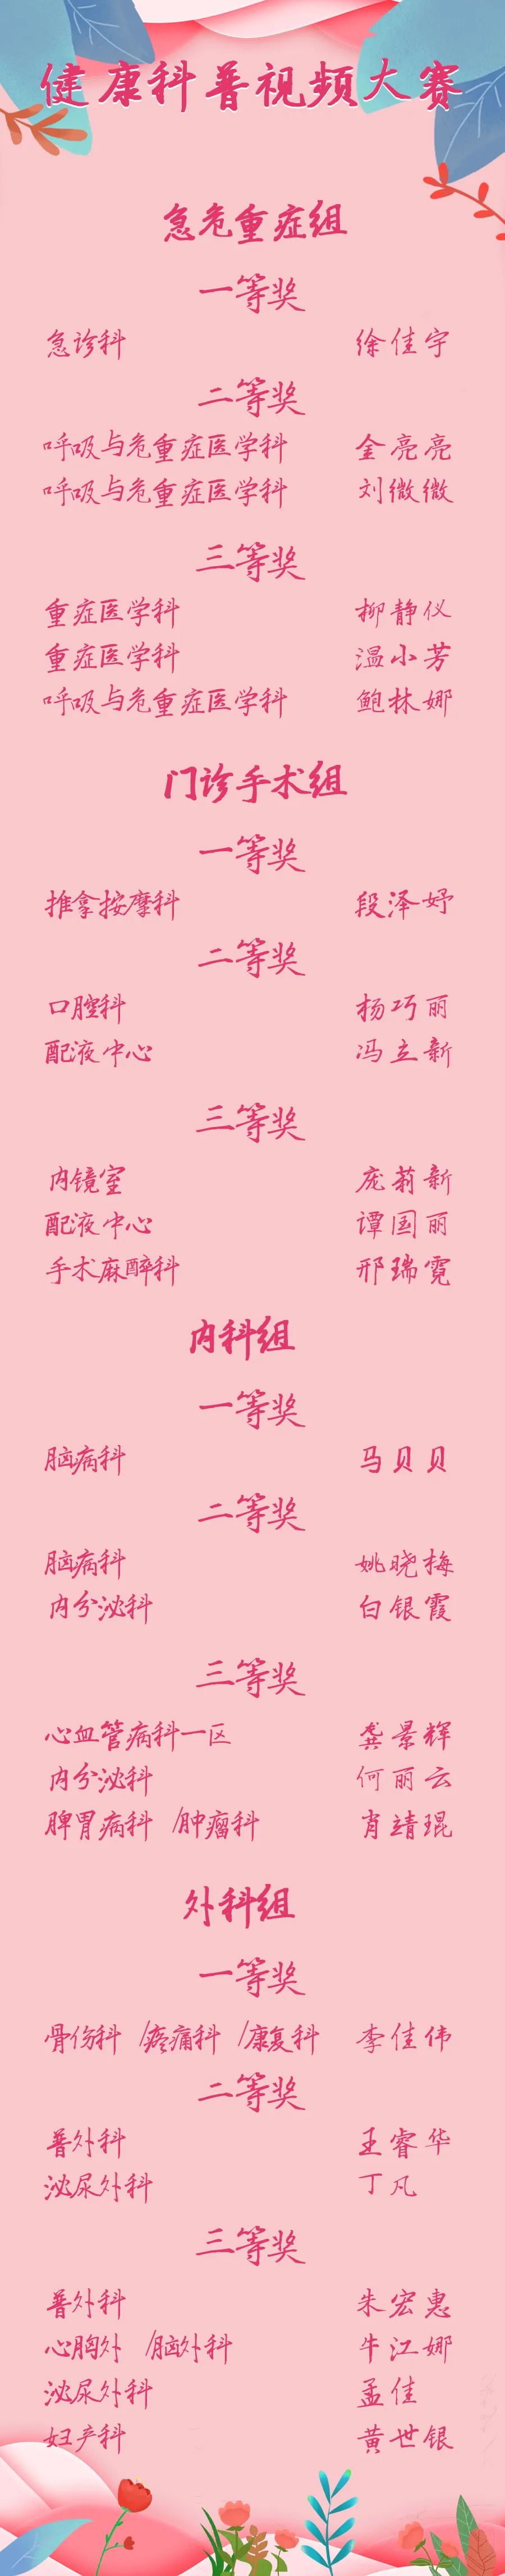 健康科普视频大赛
急危重症组
一等奖
急诊科 徐佳宇
二等奖
呼吸与危重症医学科 金亮亮
呼吸与危重症医学科 刘微微
三等奖
重症医学科 柳静仪
重症医学科 温小芳
呼吸与危重症医学科 鲍林娜
门诊手术组
一等奖
推拿按摩科 段泽妤
二等奖
口腔科 杨巧丽
配液中心 冯立新
三等奖
内镜室 庞莉新
配液中心 谭国丽
手术麻醉科 邢瑞霓
内科组
一等奖
脑病科 马贝贝
二等奖
脑病科 姚晓梅
内分泌科 白银霞
三等奖
心血管病科一区 龚景辉
内分泌科 何丽云
脾胃病科 /肿瘤科 肖靖琨
外科组
一等奖
骨伤科 /疼痛科 /康复科 李佳伟
二等奖
普外科 王睿华
泌尿外科 丁凡
三等奖
普外科 朱宏惠
心胸外 /脑外科 牛江娜
泌尿外科 孟佳
妇产科 黄世银